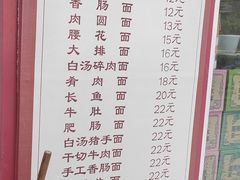 香肠面 12元
肉圆面 12元
腰花面 13元
大排面 15元
白汤碎肉面 16元
肴肉面 16元
长鱼面 18元
牛肉面 20元
肥肠面 22元
白汤猪手面 22元
干切牛肉面 22元
手工香肠面 22元